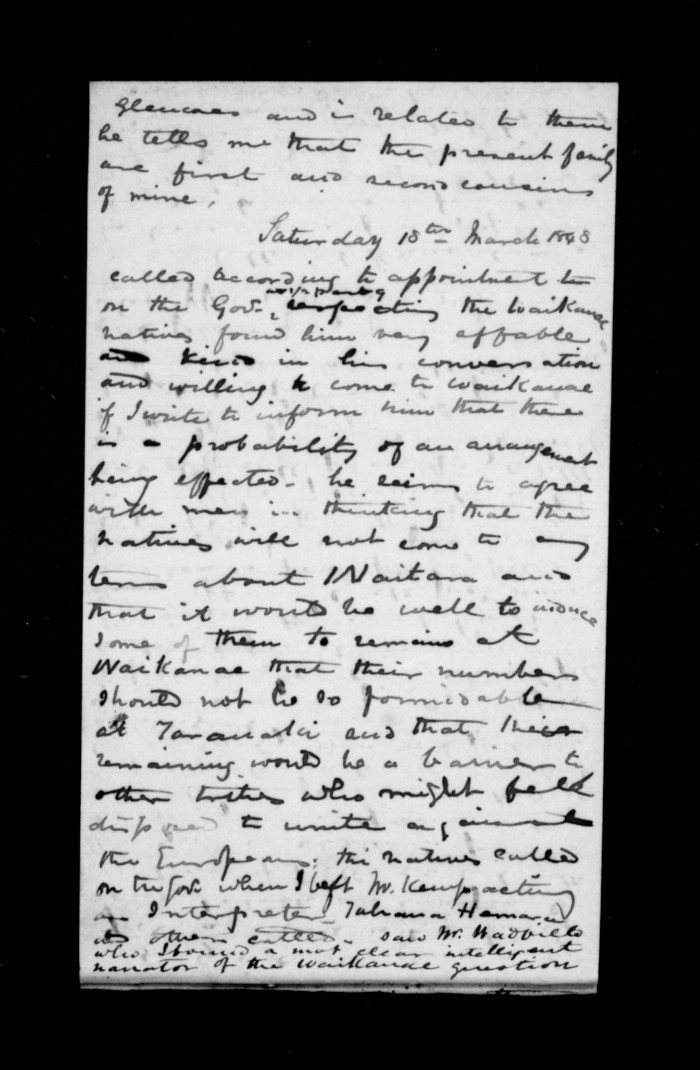 Glencoes and is related to them
he tells me that the present family
are first and second cousins
of mine.
Saturday 18th March 1848
called according to appointment to
on the Gov. respecting the Waikanae
natives found him very affable
and kind in his conversation
and willing to come to Waikanae
if I write to inform him that there
is a probability of an arrangement
being effected - he seems to agree
with me in thinking that the
natives will not come to any
terms about Waitara and
that it would be well to induce
some of them to remain at
Waikanae that their numbers
should not be so formidable
at Taranaki and that their
remaining would be a barrier to
other tribes who might feel
disposed to unite against
the Europeans. the natives called
on the Gov. when I left Mr. Kemp acting
as Interpreter
others called - saw Mr.
who I found a most clear intelligent
narrator of the Waikanae question